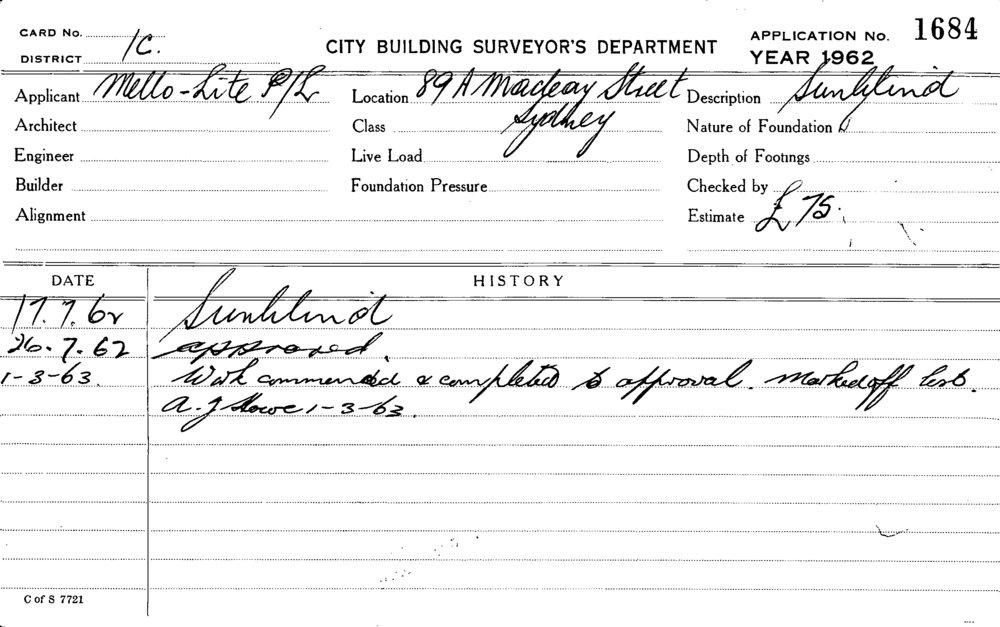 CARD No.
DISTRICT 1C.
CITY BUILDING SURVEYOR'S DEPARTMENT
APPLICATION No. 1684
YEAR 1962
Applicant Mello-Lite P/L
Location 89A Macleay Street Sydney
Description Sunblind
Architect
Class
Nature of Foundation
Engineer
Live Load
Depth of Footings
Builder
Foundation Pressure
Checked by
Alignment
Estimate £75.
DATE HISTORY
17.7.62 Sunblind
26.7.62 approved.
1-3-63. Work commenced & completed to approval. Marked off
A. J Howe 1-3-63.
C of S 7721